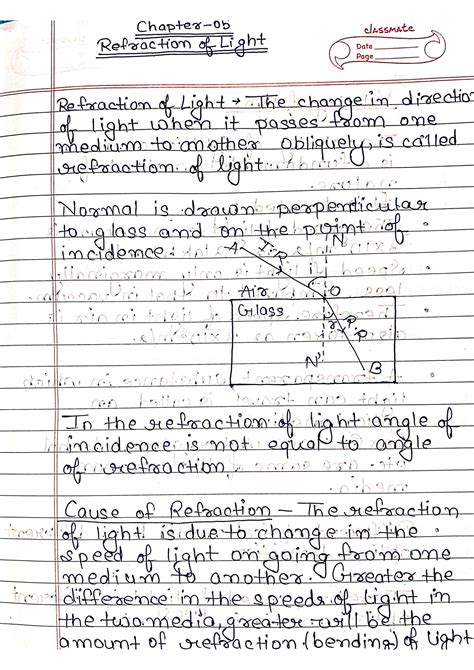 Chapter-06
Refraction of Light
classmate
Date
Page
Refraction of Light → The change in direction
of light when it passes from one
medium to another obliquely, is called
refraction of light.
Normal is drawn perpenticular
to glass and on the point of
incidence.
A
I.R
N
Air
i
O
Glass
r
R.R
N'
B
In the refraction of light angle of
incidence is not equal to angle
of refraction
Cause of Refraction – The refraction
of light is due to change in the
speed of light on going from one
medium to another. Greater the
difference in the speeds of light in
the two media, greater will be the
amount of refraction (bending) of light